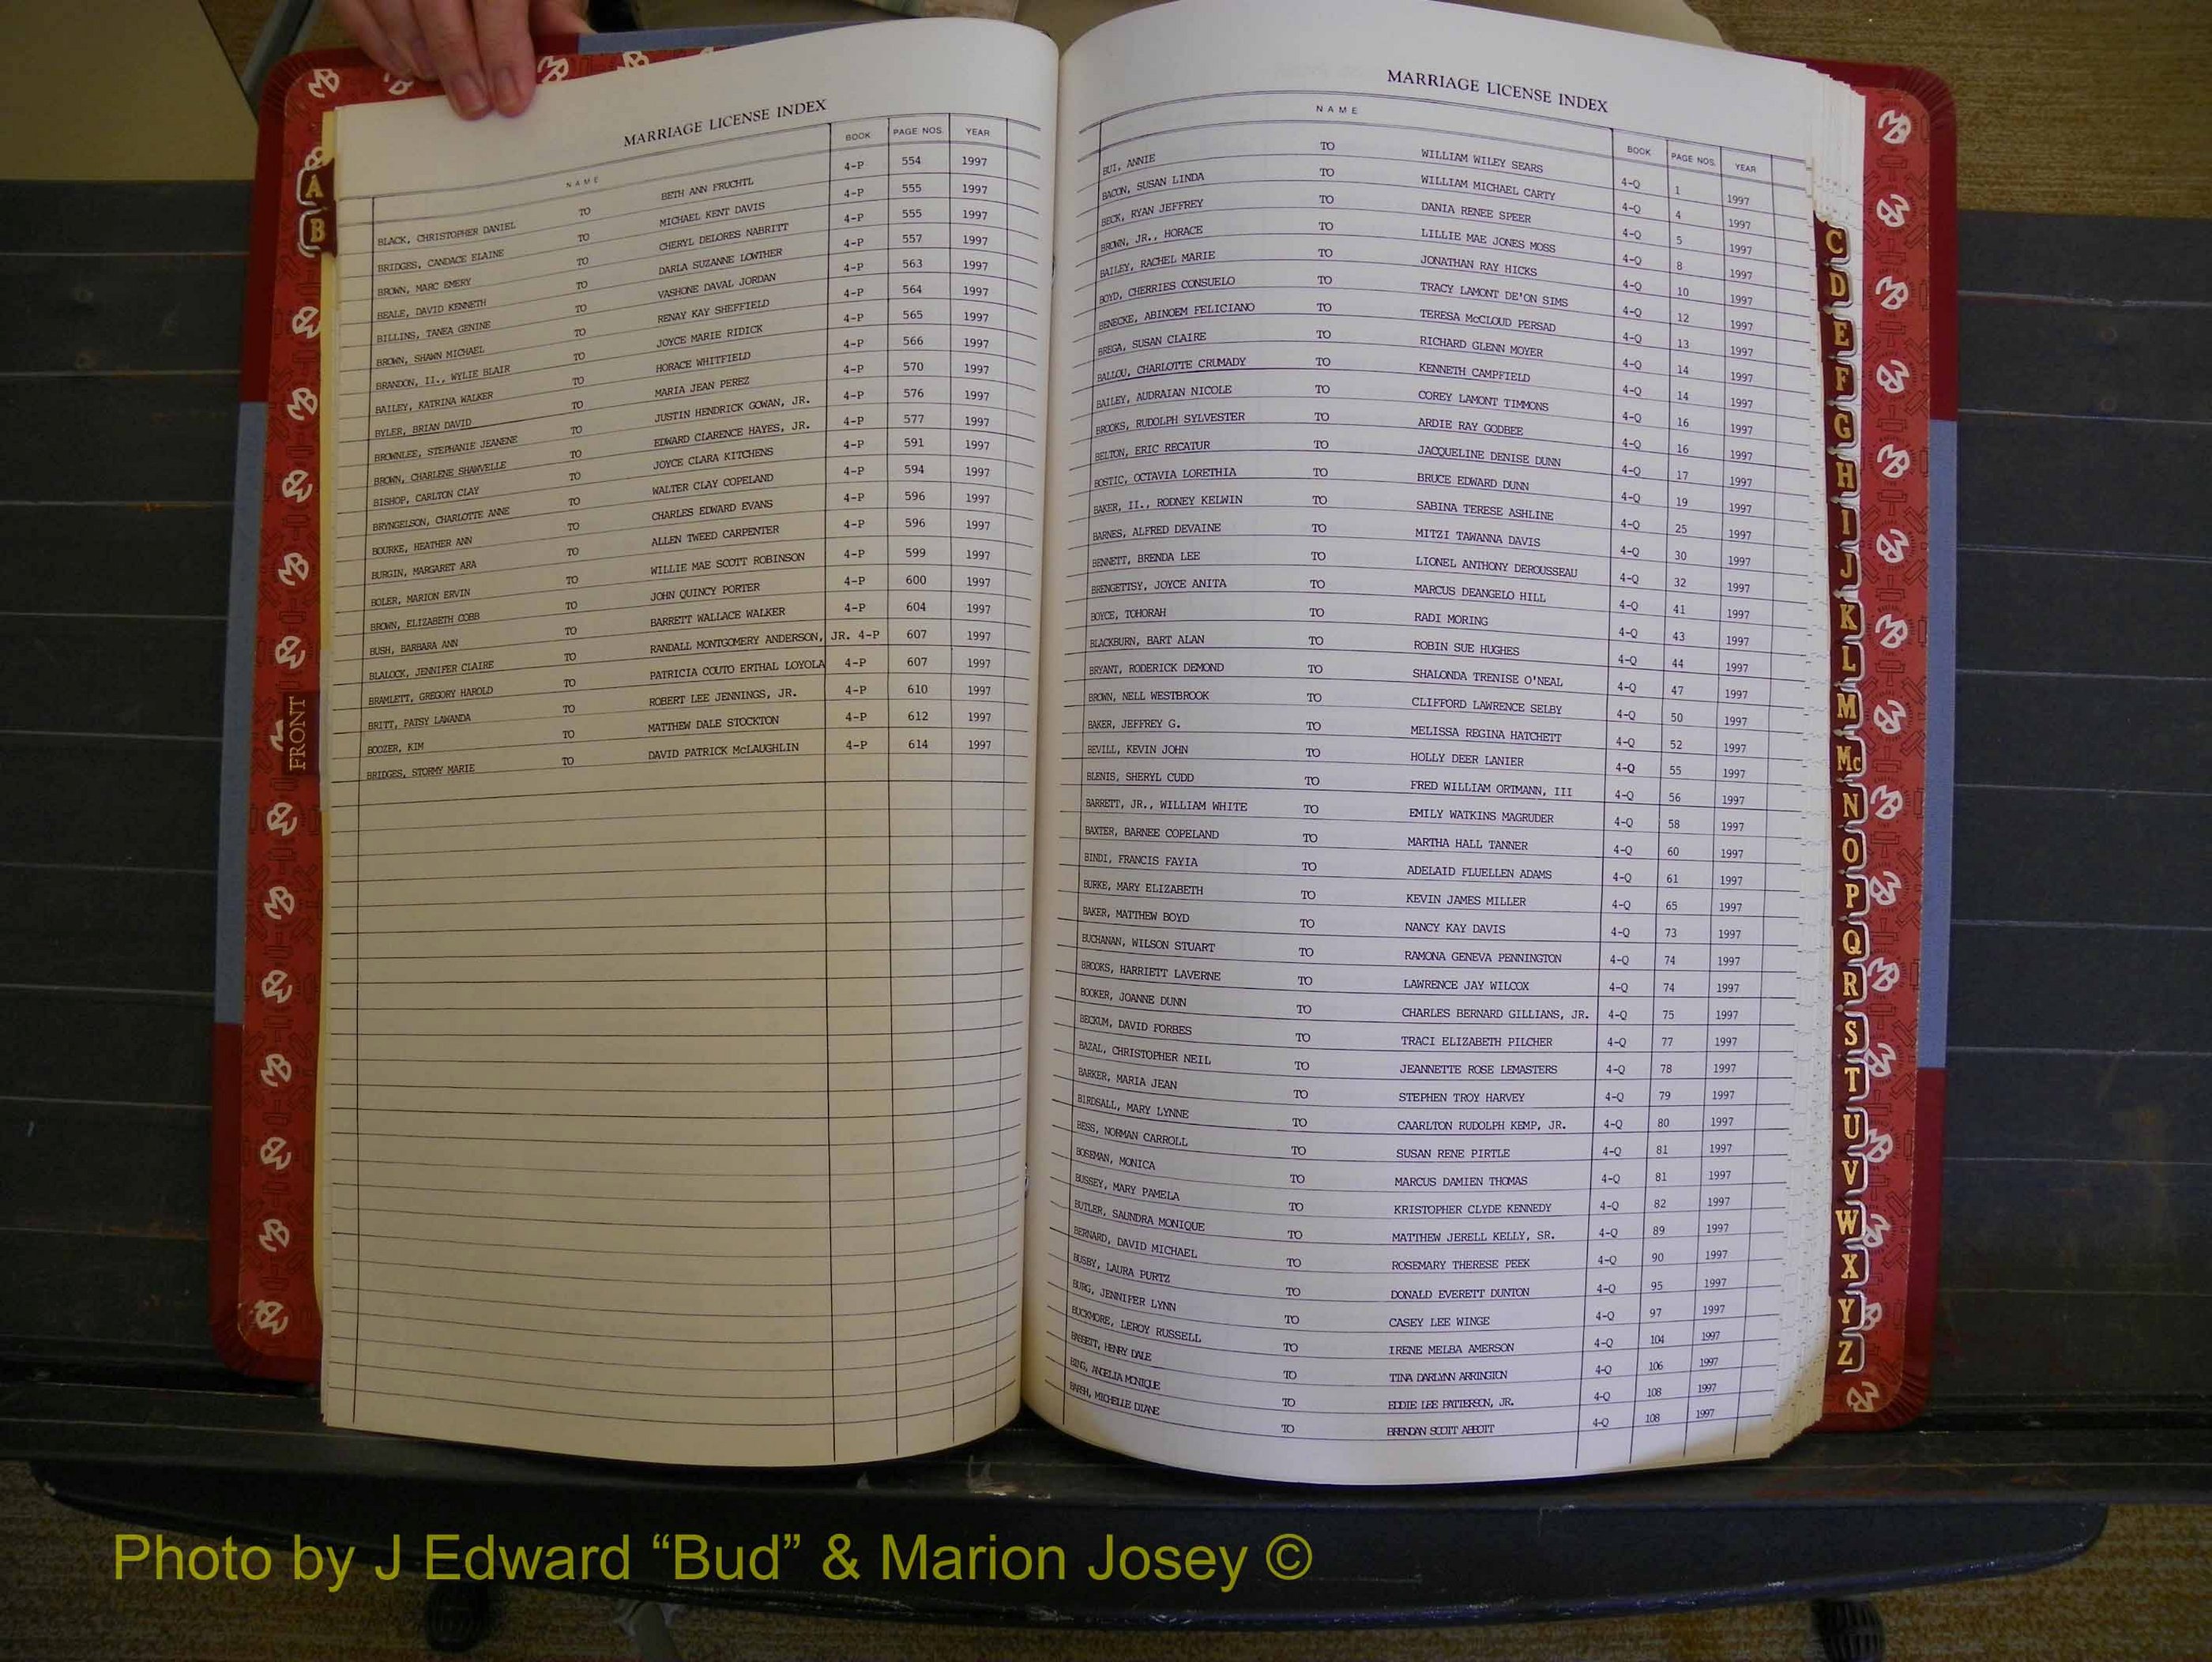 MARRIAGE LICENSE INDEX
NAME BOOK PAGE NOS. YEAR
BLACK, CHRISTOPHER DANIEL TO BETH ANN FRUCHTL 4-P 554 1997
BRIDGES, CANDACE ELAINE TO MICHAEL KENT DAVIS 4-P 555 1997
BROWN, MARC EMERY TO CHERYL DELORES NABRITT 4-P 555 1997
BEALE, DAVID KENNETH TO DARLA SUZANNE LOWTHER 4-P 557 1997
BILLINS, TANEA GENINE TO VASHONE DAVAL JORDAN 4-P 563 1997
BROWN, SHAWN MICHAEL TO RENAY KAY SHEFFIELD 4-P 564 1997
BRANDON, II., WYLIE BLAIR TO JOYCE MARIE RIDICK 4-P 565 1997
BAILEY, KATRINA WALKER TO HORACE WHITFIELD 4-P 566 1997
BYLER, BRIAN DAVID TO MARIA JEAN PEREZ 4-P 570 1997
BROWNLEE, STEPHANIE JEANENE TO JUSTIN HENDRICK GOWAN, JR. 4-P 576 1997
BROWN, CHARLENE SHAWVELLE TO EDWARD CLARENCE HAYES, JR. 4-P 577 1997
BISHOP, CARLTON CLAY TO JOYCE CLARA KITCHENS 4-P 591 1997
BRYNGELSON, CHARLOTTE ANNE TO WALTER CLAY COPELAND 4-P 594 1997
BOURKE, HEATHER ANN TO CHARLES EDWARD EVANS 4-P 596 1997
BURGIN, MARGARET ARA TO ALLEN TWEED CARPENTER 4-P 596 1997
BOLER, MARION ERVIN TO WILLIE MAE SCOTT ROBINSON 4-P 599 1997
BROWN, ELIZABETH COBB TO JOHN QUINCY PORTER 4-P 600 1997
BUSH, BARBARA ANN TO BARRETT WALLACE WALKER 4-P 604 1997
BLALOCK, JENNIFER CLAIRE TO RANDALL MONTGOMERY ANDERSON, JR. 4-P 607 1997
BRAMLETT, GREGORY HAROLD TO PATRICIA COUTO ERTHAL LOYOLA 4-P 607 1997
BRITT, PATSY LAWANDA TO ROBERT LEE JENNINGS, JR. 4-P 610 1997
BOOZER, KIM TO MATTHEW DALE STOCKTON 4-P 612 1997
BRIDGES, STORMY MARIE TO DAVID PATRICK McLAUGHLIN 4-P 614 1997
A
B
FRONT
MARRIAGE LICENSE INDEX
NAME BOOK PAGE NOS. YEAR
BUI, ANNIE TO WILLIAM WILEY SEARS 4-Q 1 1997
BACON, SUSAN LINDA TO WILLIAM MICHAEL CARTY 4-Q 4 1997
BECK, RYAN JEFFREY TO DANIA RENEE SPEER 4-Q 5 1997
BROWN, JR., HORACE TO LILLIE MAE JONES MOSS 4-Q 8 1997
BAILEY, RACHEL MARIE TO JONATHAN RAY HICKS 4-Q 10 1997
BOYD, CHERRIES CONSUELO TO TRACY LAMONT DE'ON SIMS 4-Q 12 1997
BENECKE, ABINOEM FELICIANO TO TERESA McCLOUD PERSAD 4-Q 13 1997
BREGA, SUSAN CLAIRE TO RICHARD GLENN MOYER 4-Q 14 1997
BALLOU, CHARLOTTE CRUMADY TO KENNETH CAMPFIELD 4-Q 14 1997
BAILEY, AUDRAIAN NICOLE TO COREY LAMONT TIMMONS 4-Q 16 1997
BROOKS, RUDOLPH SYLVESTER TO ARDIE RAY GODBEE 4-Q 16 1997
BELTON, ERIC RECATUR TO JACQUELINE DENISE DUNN 4-Q 17 1997
BOSTIC, OCTAVIA LORETHIA TO BRUCE EDWARD DUNN 4-Q 19 1997
BAKER, II., RODNEY KELWIN TO SABINA TERESE ASHLINE 4-Q 25 1997
BARNES, ALFRED DEVAINE TO MITZI TAWANNA DAVIS 4-Q 30 1997
BENNETT, BRENDA LEE TO LIONEL ANTHONY DEROUSSEAU 4-Q 32 1997
BRENGETTSY, JOYCE ANITA TO MARCUS DEANGELO HILL 4-Q 41 1997
BOYCE, TOHORAH TO RADI MORING 4-Q 43 1997
BLACKBURN, BART ALAN TO ROBIN SUE HUGHES 4-Q 44 1997
BRYANT, RODERICK DEMOND TO SHALONDA TRENISE O'NEAL 4-Q 47 1997
BROWN, NELL WESTBROOK TO CLIFFORD LAWRENCE SELBY 4-Q 50 1997
BAKER, JEFFREY G. TO MELISSA REGINA HATCHETT 4-Q 52 1997
BEVILL, KEVIN JOHN TO HOLLY DEER LANIER 4-Q 55 1997
BLENIS, SHERYL CUDD TO FRED WILLIAM ORTMANN, III 4-Q 56 1997
BARRETT, JR., WILLIAM WHITE TO EMILY WATKINS MAGRUDER 4-Q 58 1997
BAXTER, BARNEE COPELAND TO MARTHA HALL TANNER 4-Q 60 1997
BINDI, FRANCIS FAYIA TO ADELAID FLUELLEN ADAMS 4-Q 61 1997
BURKE, MARY ELIZABETH TO KEVIN JAMES MILLER 4-Q 65 1997
BAKER, MATTHEW BOYD TO NANCY KAY DAVIS 4-Q 73 1997
BUCHANAN, WILSON STUART TO RAMONA GENEVA PENNINGTON 4-Q 74 1997
BROOKS, HARRIETT LAVERNE TO LAWRENCE JAY WILCOX 4-Q 74 1997
BOOKER, JOANNE DUNN TO CHARLES BERNARD GILLIANS, JR. 4-Q 75 1997
BECKUM, DAVID FORBES TO TRACI ELIZABETH PILCHER 4-Q 77 1997
BAZAL, CHRISTOPHER NEIL TO JEANNETTE ROSE LEMASTERS 4-Q 78 1997
BARKER, MARIA JEAN TO STEPHEN TROY HARVEY 4-Q 79 1997
BIRDSALL, MARY LYNNE TO CAARLTON RUDOLPH KEMP, JR. 4-Q 80 1997
BESS, NORMAN CARROLL TO SUSAN RENE PIRTLE 4-Q 81 1997
BOSEMAN, MONICA TO MARCUS DAMIEN THOMAS 4-Q 81 1997
BUSSEY, MARY PAMELA TO KRISTOPHER CLYDE KENNEDY 4-Q 82 1997
BUTLER, SAUNDRA MONIQUE TO MATTHEW JERELL KELLY, SR. 4-Q 89 1997
BERNARD, DAVID MICHAEL TO ROSEMARY THERESE PEEK 4-Q 90 1997
BUSBY, LAURA PURTZ TO DONALD EVERETT DUNTON 4-Q 95 1997
BURG, JENNIFER LYNN TO CASEY LEE WINGE 4-Q 97 1997
BUCKMORE, LEROY RUSSELL TO IRENE MELBA AMERSON 4-Q 104 1997
BASSETT, HENRY DALE TO TINA DARLYNN ARRINGTON 4-Q 106 1997
BING, ANGELIA MONIQUE TO EDDIE LEE PATTERSON, JR. 4-Q 108 1997
BARSH, MICHELLE DIANE TO BRENDAN SCOTT ABBOTT 4-Q 108 1997
C
D
E
F
G
H
I
J
K
L
M
Mc
N
O
P
Q
R
S
T
U
V
W
X
Y
Z
Photo by J Edward “Bud” & Marion Josey ©